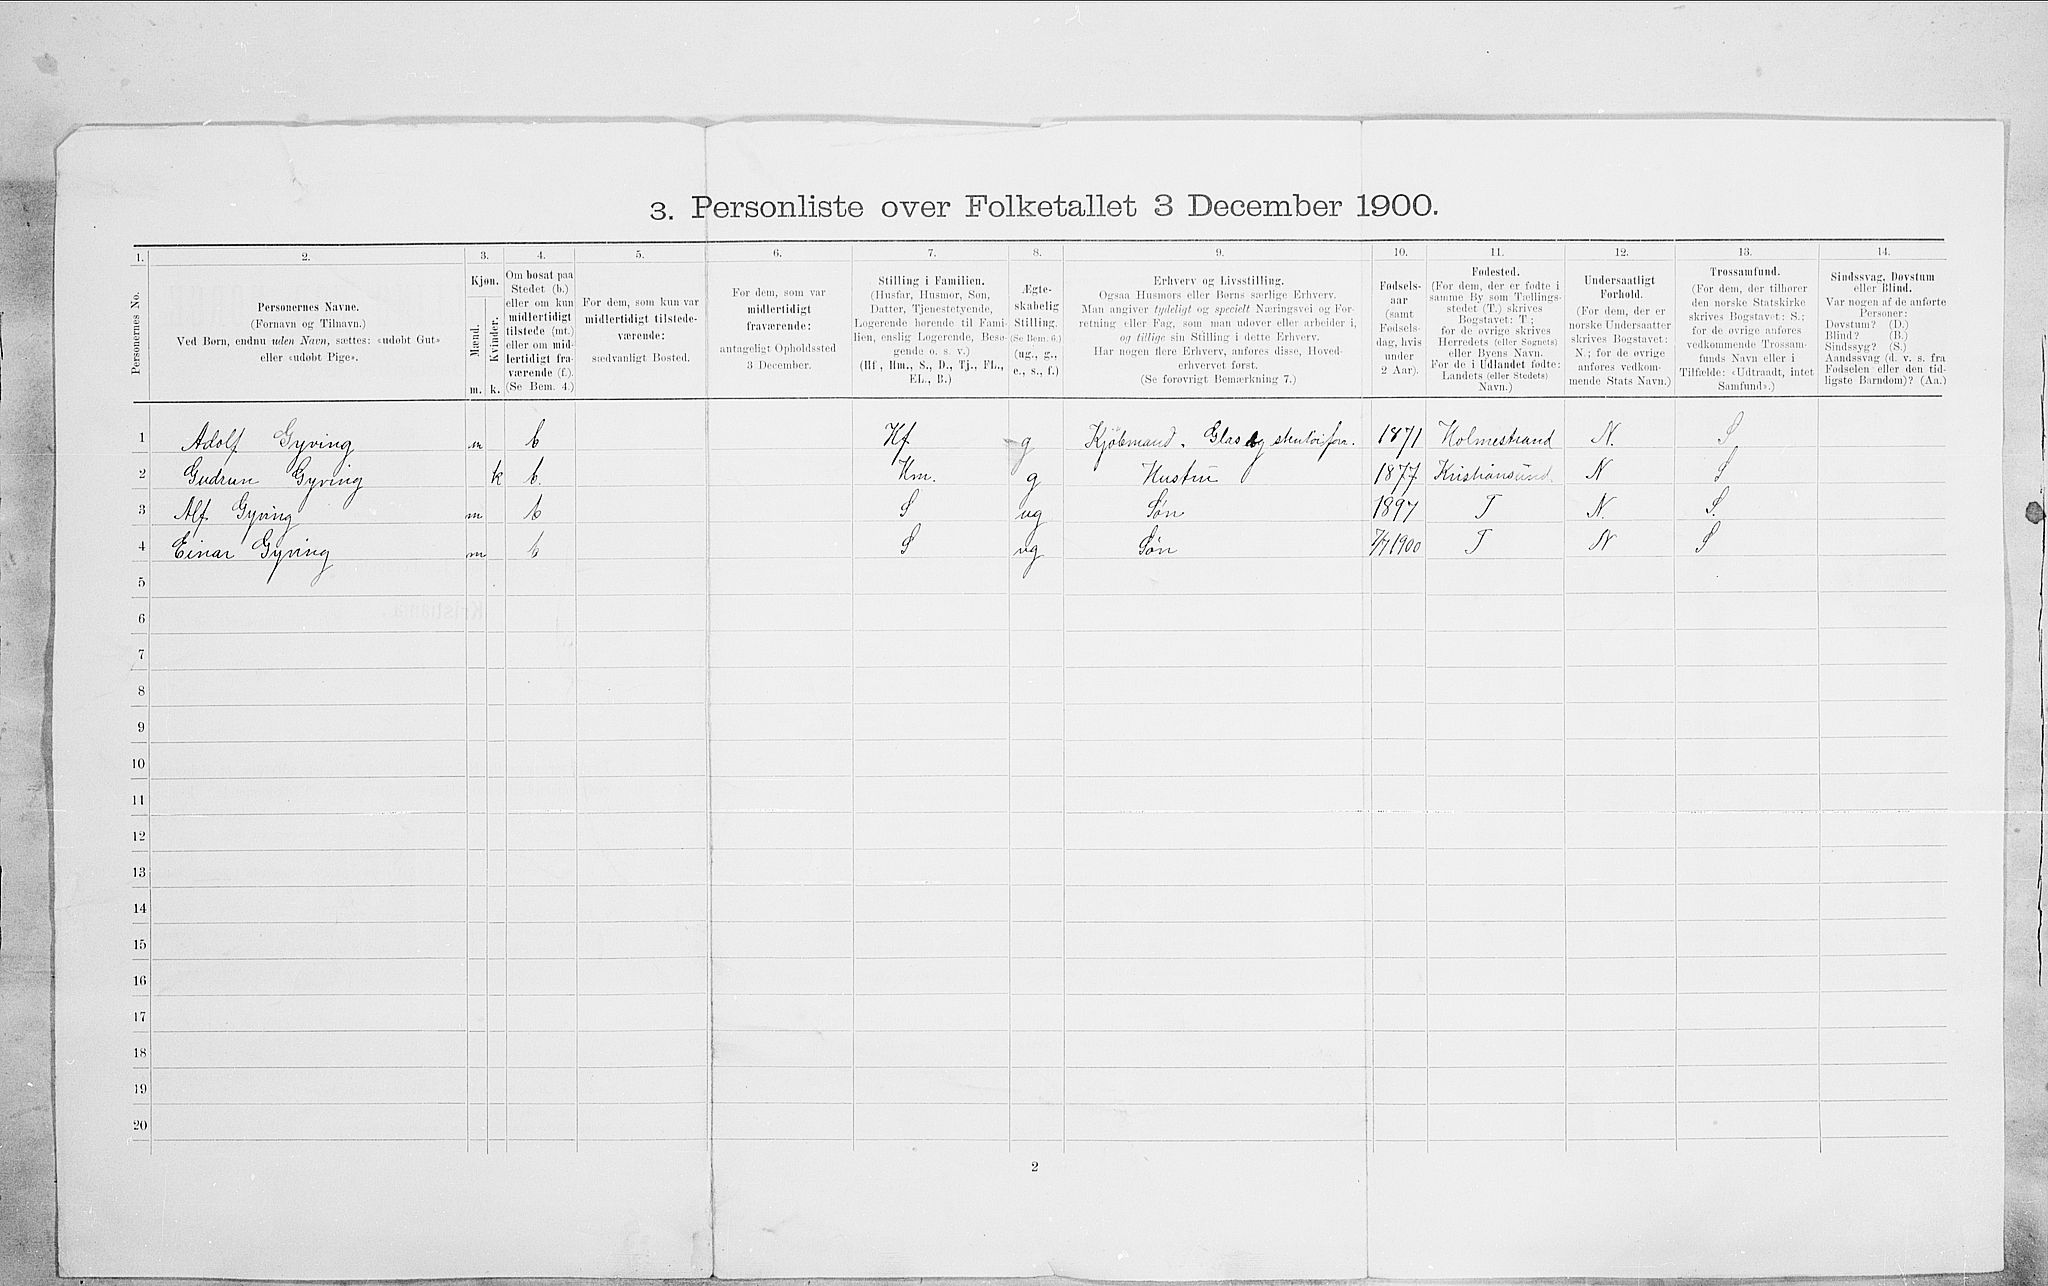 3. Personliste over Folketallet 3 December 1900.
1. 2. 3. 4. 5. 6. 7. 8. 9. 10. 11. 12. 13. 14.
Personernes No.
Personernes Navne.
(Fornavn og Tilnavn.)
Ved Børn, endnu uden Navn, sættes: «udøbt Gut»
eller «udøbt Pige».
Kjøn.
Mænd. Kvinder.
m. k.
Om bosat paa
Stedet (b.)
eller om kun
midlertidigt
tilstede (mt.)
eller om mid-
lertidigt fra-
værende (f.).
(Se Bem. 4.)
For dem, som kun var
midlertidigt tilstede-
værende:
sædvanligt Bosted.
For dem, som var
midlertidigt
fraværende:
antageligt Opholdssted
3 December.
Stilling i Familien.
(Husfar, Husmor, Søn,
Datter, Tjenestetyende,
Logerende hørende til Fami-
lien, enslig Logerende, Besø-
gende o. s. v.)
(Hf, Hm., S., D., Tj., FL.,
EL., B.)
Ægte-
skabelig
Stilling.
(Se Bem. 6.)
(ug., g.,
e., s., f.)
Erhverv og Livsstilling.
Ogsaa Husmors eller Børns særlige Erhverv.
Man angiver tydeligt og specielt Næringsvei og For-
retning eller Fag, som man udøver eller arbeider i,
og tillige sin Stilling i dette Erhverv.
Har nogen flere Erhverv, anføres disse, Hoved-
erhvervet først.
(Se forøvrigt Bemærkning 7.)
Fødsels-
aar
(samt
Fødsels-
dag, hvis
under
2 Aar).
Fødested.
(For dem, der er fødte i
samme By som Tællings-
stedet (T.) skrives
Bogstavet: T;
for de øvrige skrives
Herredets (eller Sognets)
eller Byens Navn.
For de i Udlandet fødte:
Landets (eller Stedets)
Navn.)
Undersaatligt
Forhold.
(For dem, der er
norske Undersaatter
skrives Bogstavet:
N.; for de øvrige
anføres vedkom-
mende Stats Navn.)
Trossamfund.
(For dem, der tilhører
den norske Statskirke
skrives Bogstavet: S.;
for de øvrige anføres
vedkommende Trossam-
funds Navn eller i
Tilfælde: «Udtraadt, intet
Samfund».)
Sindssvag, Døvstum
eller Blind.
Var nogen af de anførte
Personer:
Døvstum? (D.)
Blind? (B.)
Sindssyg? (S.)
Aandssvag (d. v. s. fra
Fødselen eller den tid-
ligste Barndom)? (Aa.)
1 Adolf Gyving m b Hf g Kjøbmand. Glas og stentøiforr. 1871 Holmestrand N. S
2 Gudrun Gyving k b. Hm. g Hustru 1877 Kristiansund. N S
3 Alf Gyving m b S ug Søn 1897 T N. S.
4 Einar Gyving m b S ug Søn 7/7 1900 T N S
5
6
7
8
9
10
11
12
13
14
15
16
17
18
19
20
2